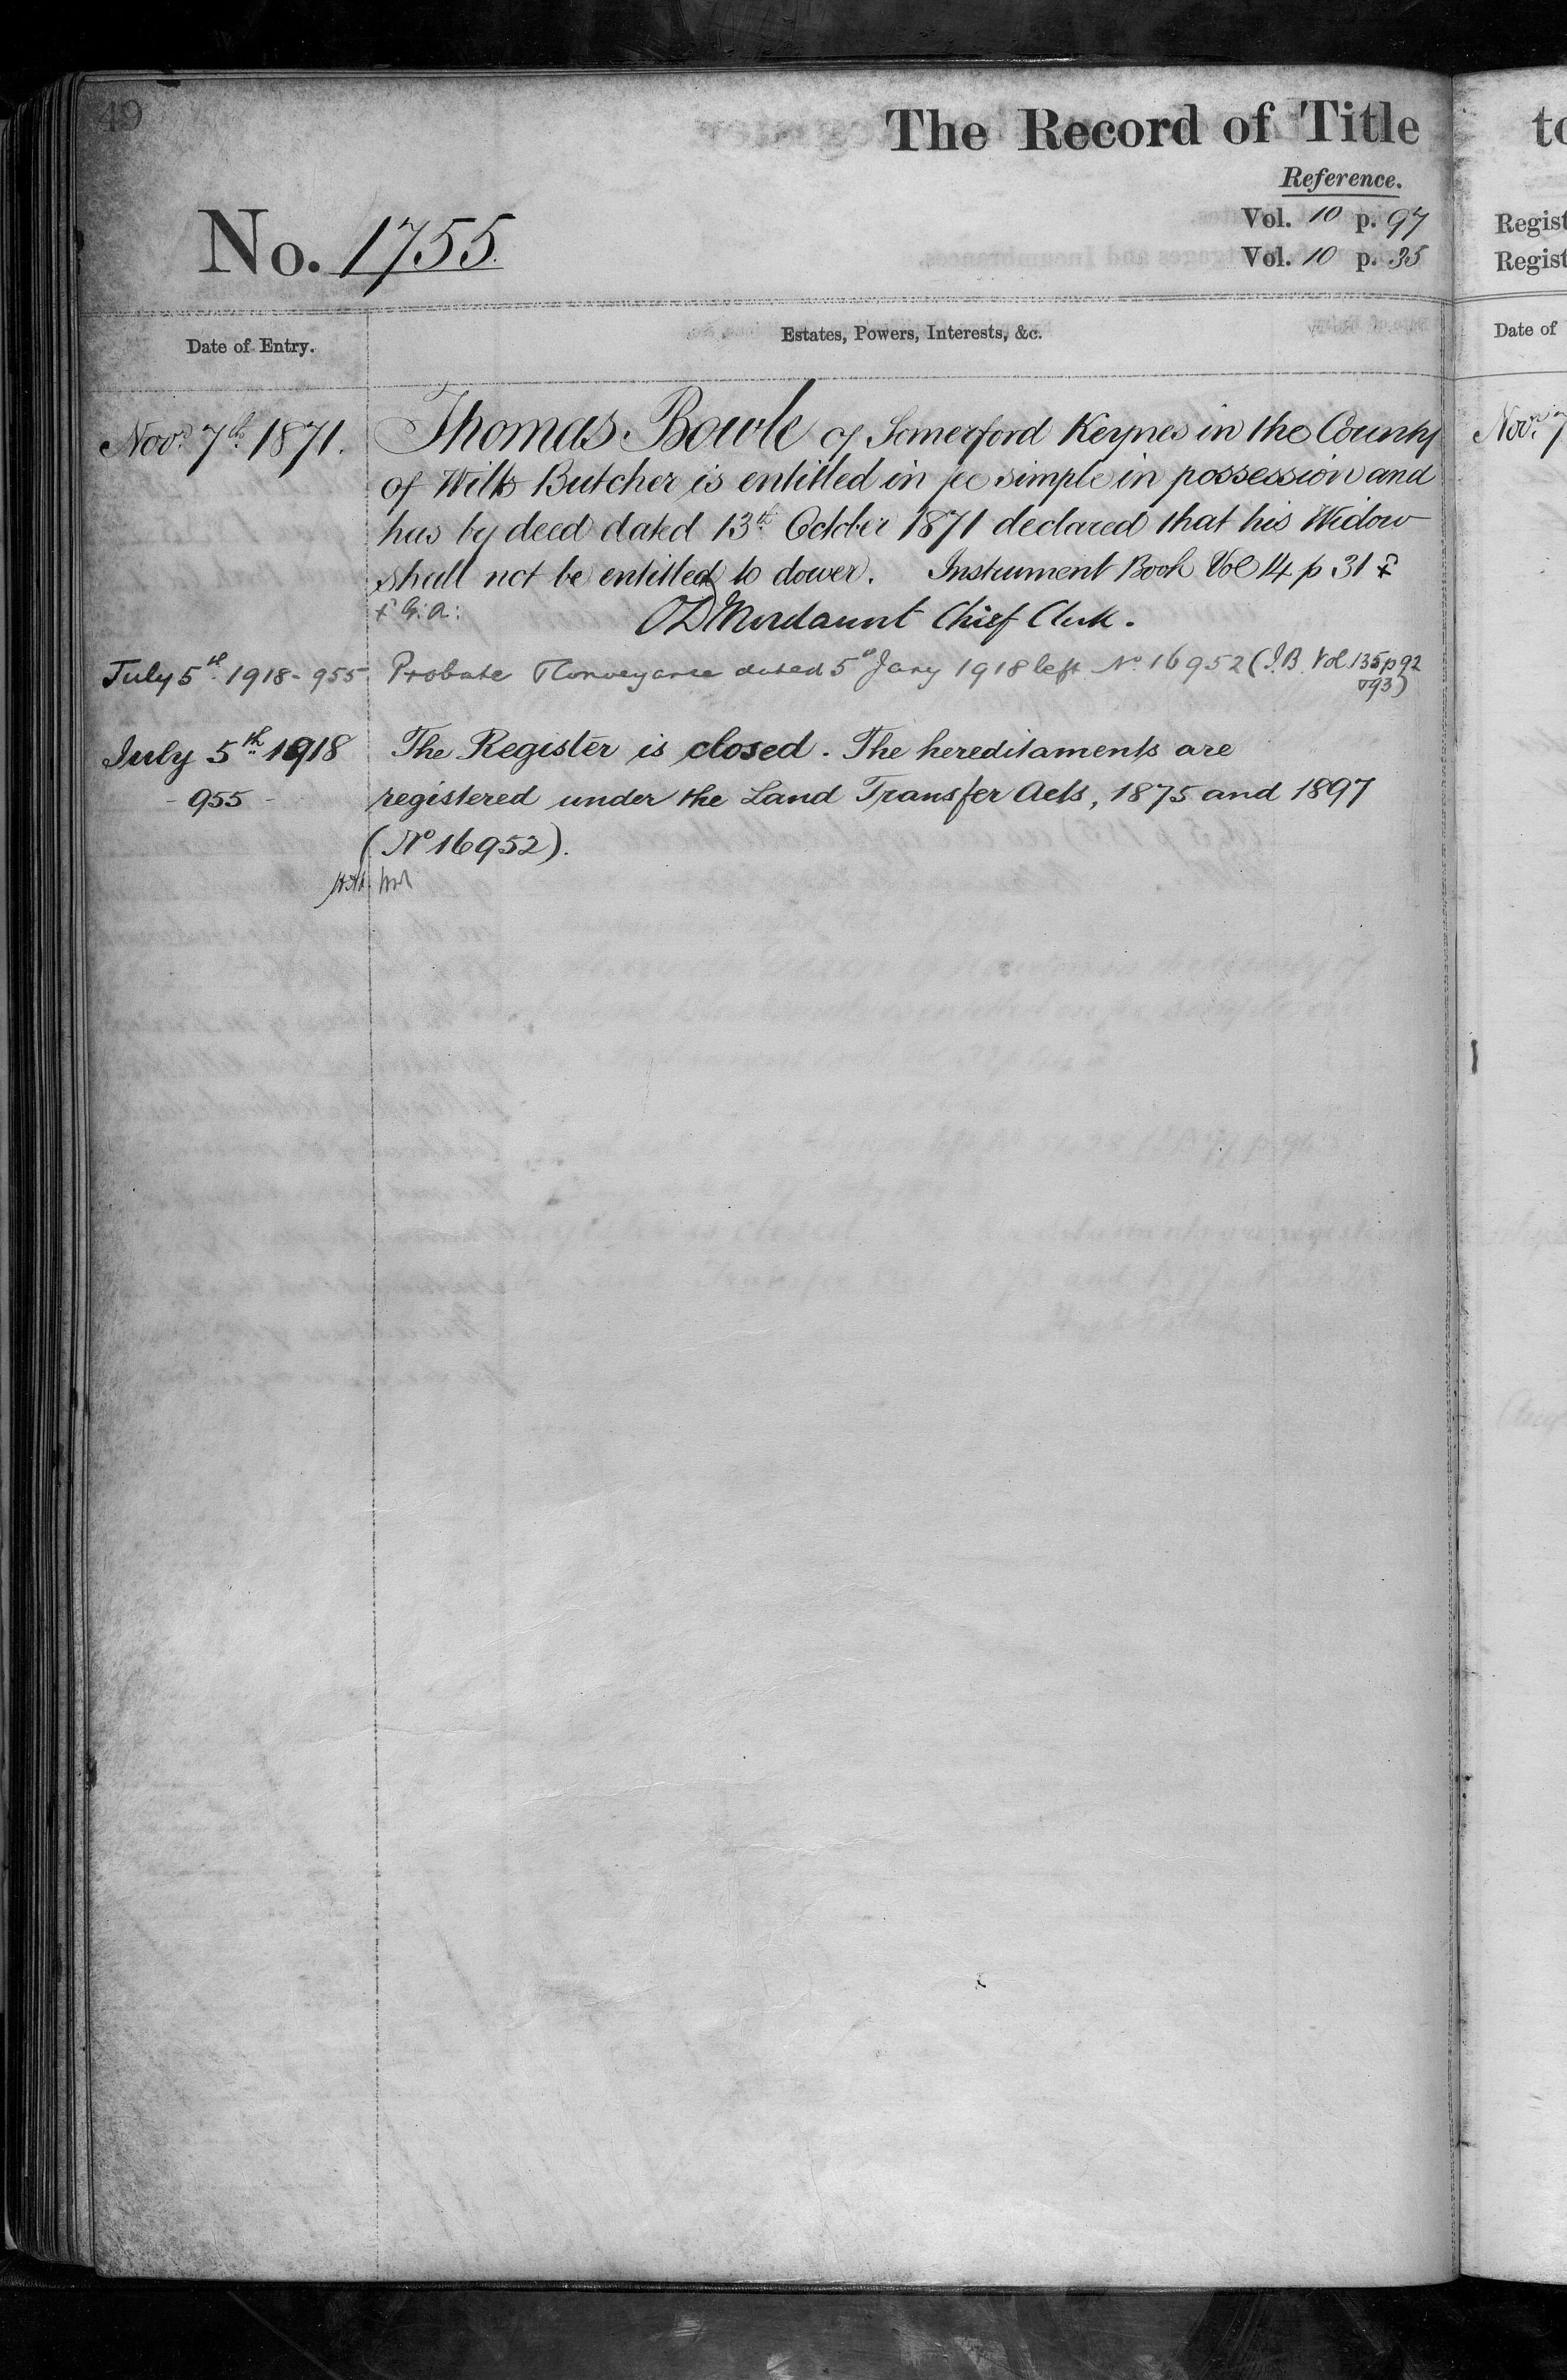 49
The Record of Title
Reference.
No. 1755.
Vol. 10 p. 97
Vol. 10 p. 35
Date of Entry.
Estates, Powers, Interests, &c.
Novr. 7th 1871. Thomas Bowle of Somerford Keynes in the County
of Wilts Butcher is entitled in fee simple in possession and
has by deed dated 13th October 1871 declared that his Widow
shall not be entitled to dower. Instrument Book Vol 14 p 31 x
x G: A:
Mordaunt Chief Clerk.
July 5th 1918 - 955 Probate & Conveyance dated 5th Jany 1918 left No 16952 (I.B. Vol 135 p 92
& 93)
July 5th 1918 The Register is closed. The hereditaments are
- 955 - registered under the Land Transfer Acts, 1875 and 1897
(No 16952).
to
Regist
Regist
Date of
Novr. 7